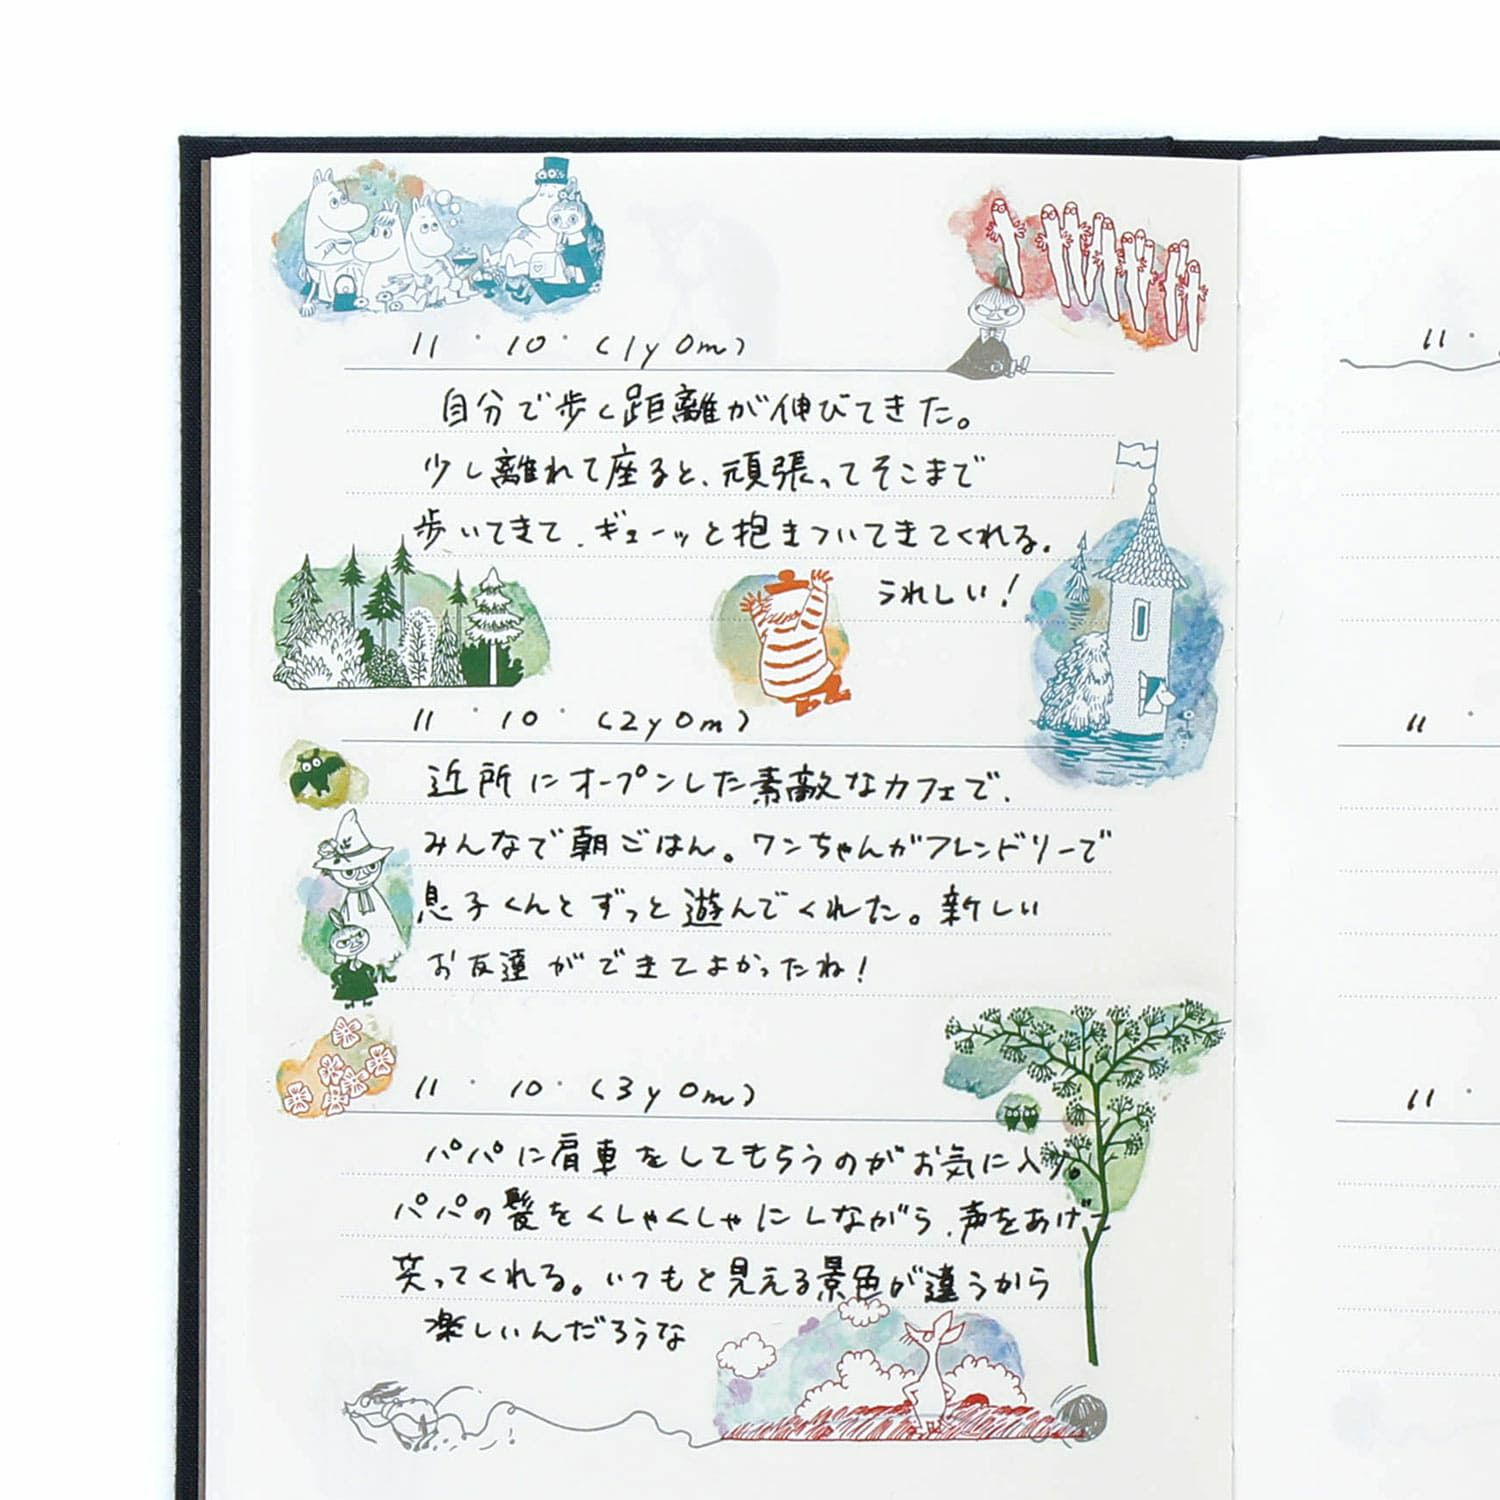 11・10・(1y0m)
自分で歩く距離が伸びてきた。
少し離れて座ると、頑張ってそこまで
歩いてきて、ギューッと抱きついてきてくれる。
うれしい！
11・10・(2y0m)
近所にオープンした素敵なカフェで、
みんなで朝ごはん。ワンちゃんがフレンドリーで
息子くんとずっと遊んでくれた。新しい
お友達ができてよかったね！
11・10・(3y0m)
パパに肩車をしてもらうのがお気に入り。
パパの髪をくしゃくしゃにしながら、声をあげて
笑ってくれる。いつもと見える景色が違うから
楽しいんだろうな
11・
11・
11・